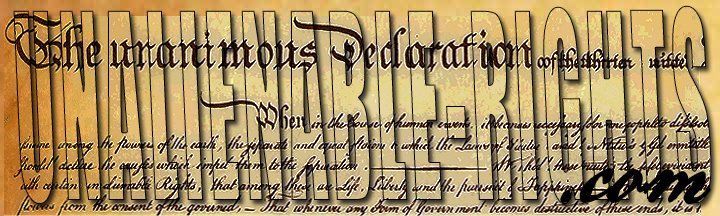 UNALIENABLE-RIGHTS
.com
The unanimous Declaration of the thirteen
When in the Course of human events, it becomes necessary for one people to dissolve
among the powers of the earth, the separate and equal station to which the Laws of Nature and of Nature's God entitle
should declare the causes which impel them to the separation. We hold these truths to be self-evident
with certain unalienable Rights, that among these are Life, Liberty and the pursuit of Happiness
powers from the consent of the governed, — That whenever any Form of Government becomes destructive of these ends, it is